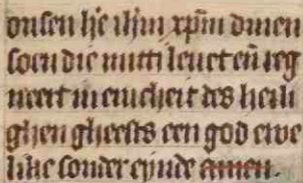 onsen he ihm xpm dinen
soen die mitti levet en reg
neert in enicheit des heili
ghen gheests een god ewe
like sonder eynde amen.